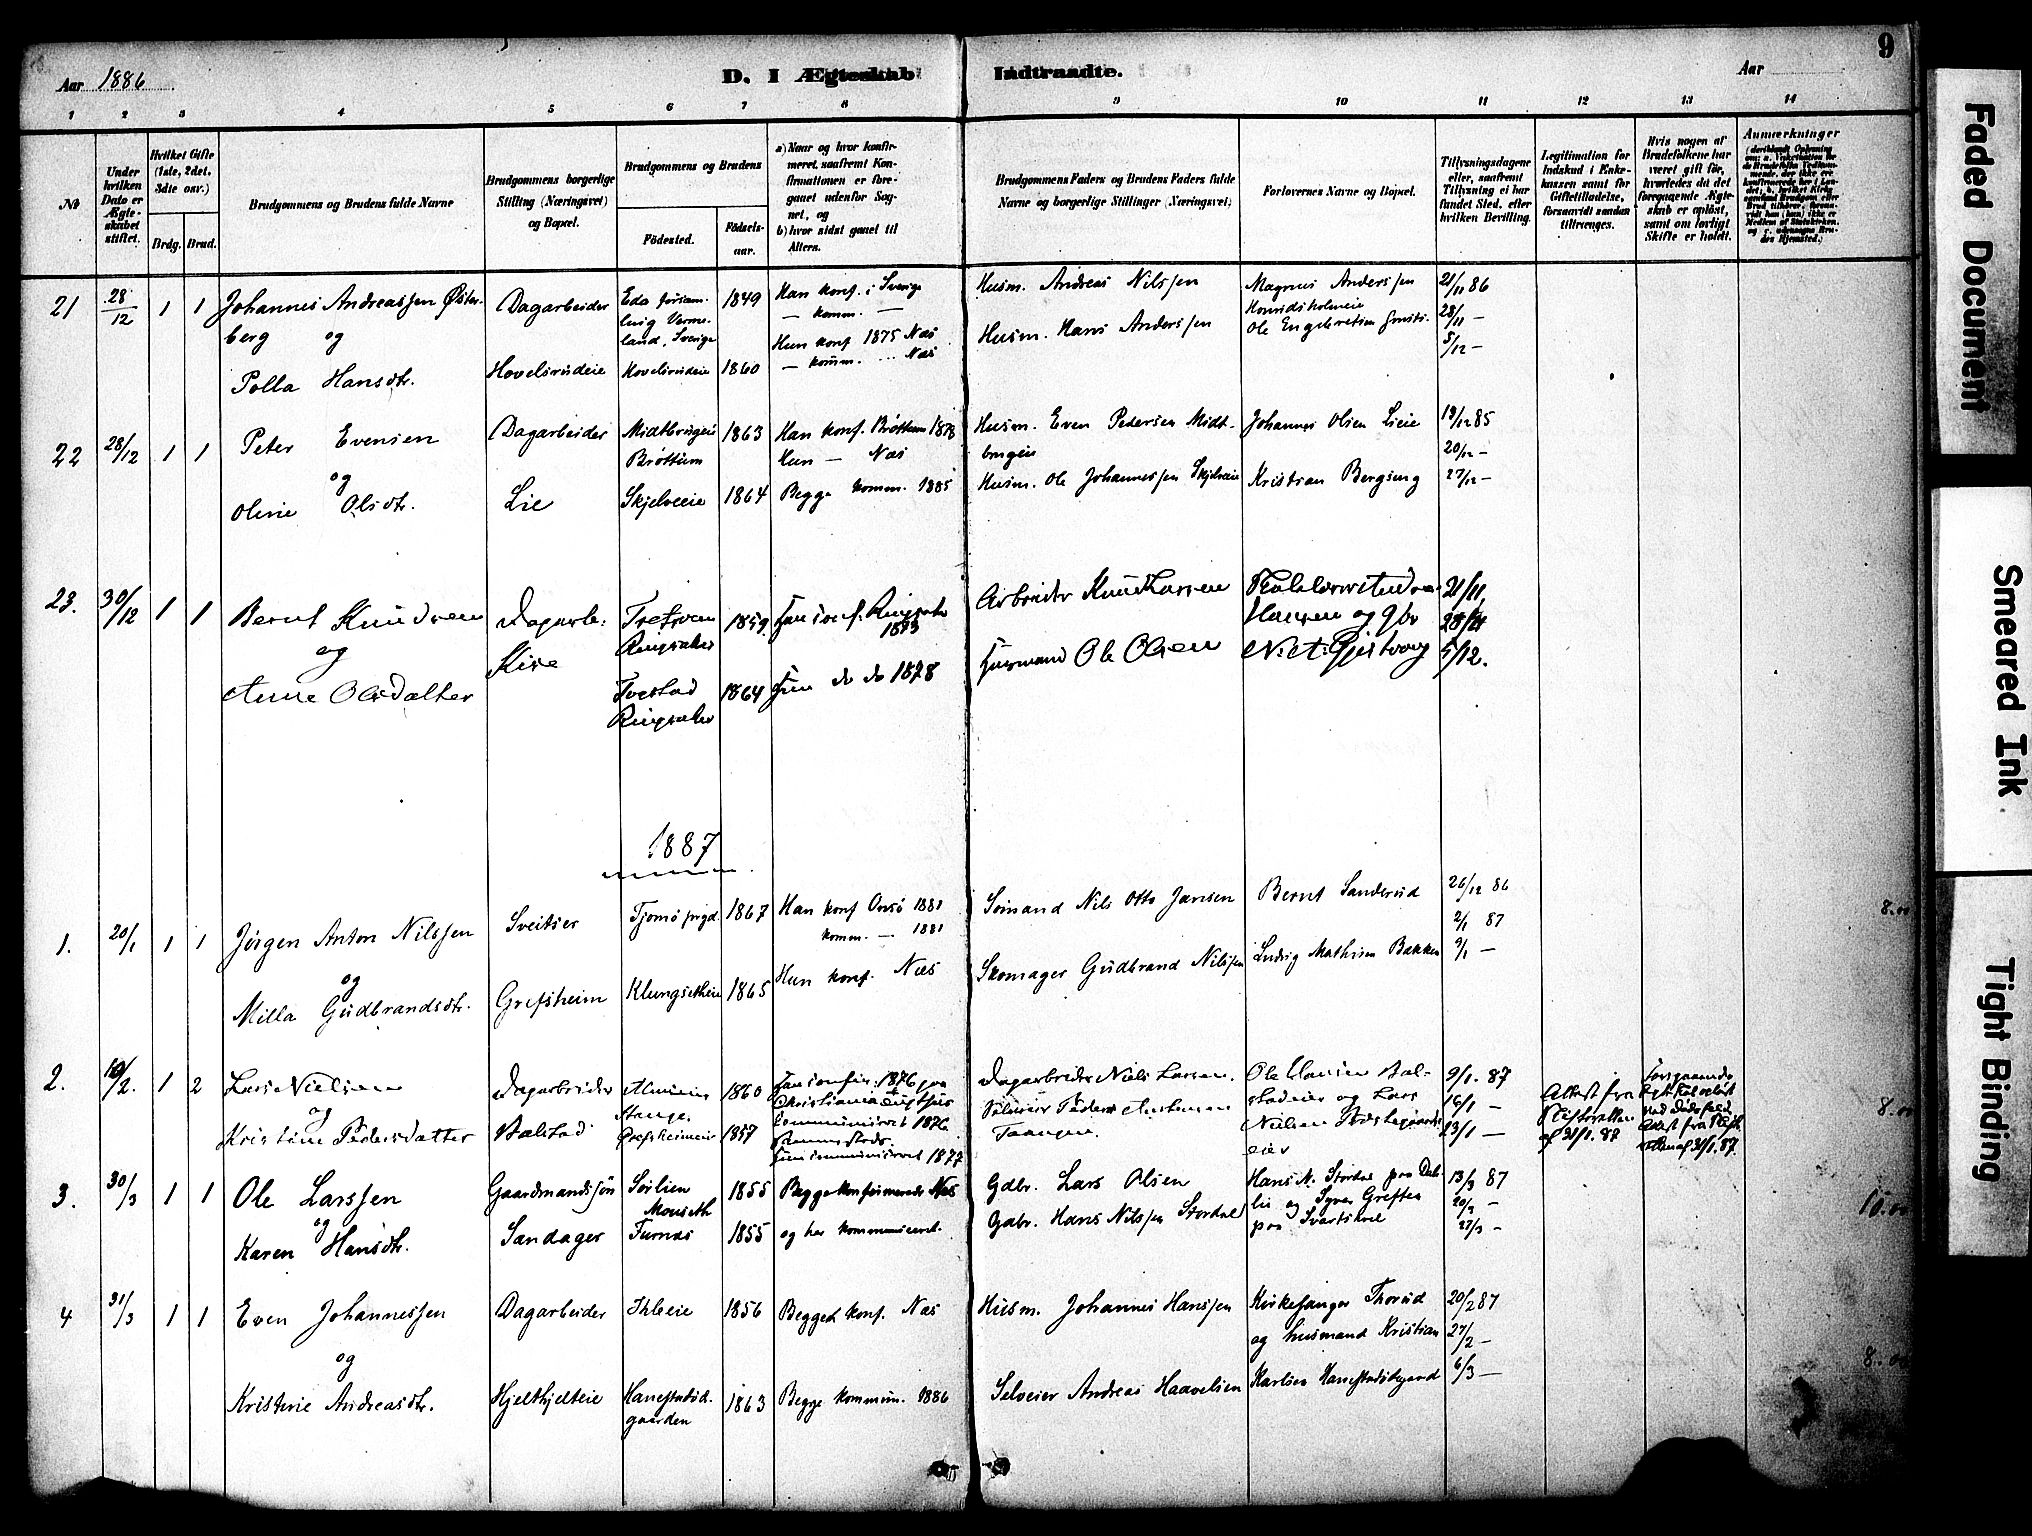 Aar 1886
D. I Ægteskab Indtraadte.
Aar
9
1 2 3 4 5 6 7 8 9 10 11 12 13 14
No
Under hvilken Dato er Ægteskabet stiftet.
Hvilket Gifte (1ste, 2det, 3die osv.)
Brdg. Brud.
Brudgommens og Brudens fulde Navne
Brudgommens borgerlige Stilling (Næringsvei) og Bopæl.
Brudgommens og Brudens
Fødested.
Fødselsaar.
a) Naar og hvor konfirmeret, saafremt Konfirmationen er foregaaet udenfor Sognet, og
b) hvor sidst gaaet til Alters.
Brudgommens Faders og Brudens Faders fulde Navne og borgerlige Stillinger (Næringsvei)
Forlovernes Navne og Bopæl.
Tillysningsdagene eller, saafremt Tillysning ei har fundet Sted, efter hvilken Bevilling.
Legitimation for Indskud i Enkekassen samt for Giftetilladelse, forsaavidt saadan tiltrænges.
Hvis nogen af Brudefolkene har været gift før, hvorledes da det foregaaende Ægteskab er opløst, samt om lovligt Skifte er holdt.
Anmærkninger
21 28/12 1 1 Johannes Andreassen Øster-
berg og
Polla Hansdtr.
Dagarbeider
Hovelsrudeie
Eda forsam-
ling Verme-
land, Sverige
Hovelsrudeie
1849
1860
Han konf. i Sverige
— komm. —
Hun konf 1875 Næs
— komm. — Næs
Husm. Andreas Nilssen
Husm. Hans Anderssen
Magnus Anderssen
Ole Engebretsen
21/11 86
28/11 —
5/12 —
22 28/12 1 1 Peter Evensen
og
Oline Olsdtr.
Dagarbeider
Lie
Midtbrugeie
Brøttum
Skjelveeie
1863
1864
Han konf. Brøttum 1878
Hun — Næs
Begge komm. 1885
Husm. Even Pedersen Midt-
brugeie
Husm. Ole Johannessen Skjelveie
Johannes Olsen Lieie
Kristian Bergseng
19/12 85
20/12 —
27/12 —
23. 30/12 1 1 Bernt Knudsen
og
Anne Olsdatter
Dagarbe.
Kise
Ringsaker
Ringsaker
1859.
1864
Han conf. Ringsaker
1873
Hun do do 1878
Arbeider Knud Larsen
Husmand Ole Olsen
Hansen og Gbr
21/11,
28/11
5/12.
1887
1. 20/1 1 1 Jørgen Anton Nilssen
og
Milla Gudbrandsdtr.
Sveitser
Grefsheim
Tjømø prgd.
Klungsetheie
1867
1865
Han konf Onsø 1881
komm. — 1881
Hun konf. Næs
Sømand Nils Otto Jansen
Skomager Gudbrand Nilssen
Bernt Sanderud
Ludvig Mathisen Bakken
26/12 86
2/1 87
9/1 —
2. 10/2. 1 2 Lars Nielsen
og
Kristine Pedersdatter
Dagarbeider
Balstad
Stange.
Grefsheimeie
1860
1857
Han confir. 1876 paa
Christiania Tugthus
Communiceret 1876
Hun communiceret 1877
Dagarbeider Niels Larsen.
Selveier Peder
Taangen.
Ole Hansen Bal-
stadeier og Lars
Nielsen
eier
9/1. 87
16/1 —
23/1 —
Attest fra
Skifteretten
af 31/1. 87
Foregaaende
Ægteskab opløst
ved Dødsfald
Attest fra Skift.
retten af 31/1. 87.
3. 30/3 1 1 Ole Larssen
og
Karen Hansdtr.
Gaardmandssøn
Sandager
Sørlien
Furnæs
1855
1855
Begge konfirmerede Næs
og har kommuniceret.
Gdbr. Lars Olsen
Gdbr. Hans Nilssen Stordal
Hans N. Stordal paa Dæh-
lie og Syver Greften
paa
13/3 87
20/3 —
27/3 —
4 31/3 1 1 Even Johannessen
og
Kristine Andreasdtr.
Dagarbeider
Hjelthjelteie
Ihleeie
Hanestadsd.
gaarden
1856
1863
Begged konf. Næs
Begge kommun. 1886
Husm. Johannes Hanssen
Selveier Andreas Haavelsen
Kirkesanger Thorud
og husmand Kristian
Karlsen
20/2 87
27/2 —
6/3 —
8.00
8.00
10.00
8.00
Faded Document
Smeared Ink
Tight Binding